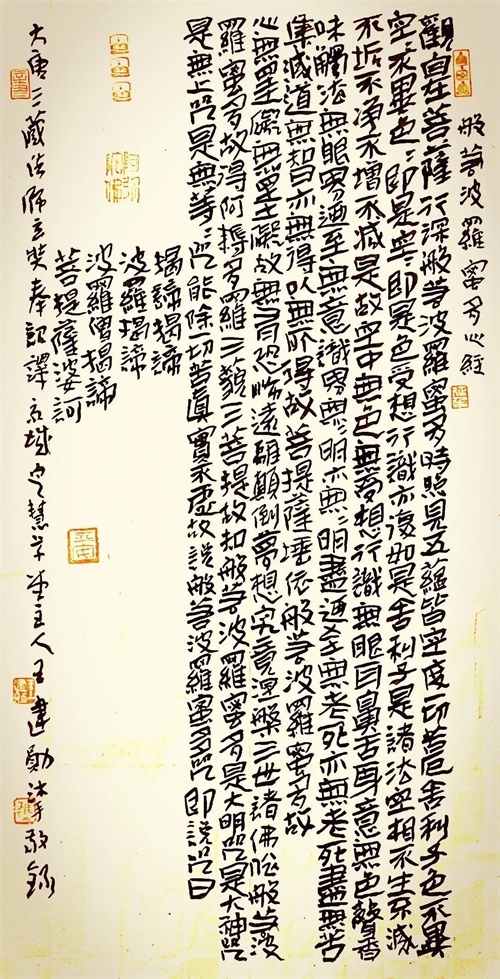 般若波羅蜜多心經
觀自在菩薩行深般若波羅蜜多時照見五蘊皆空度切苦厄舍利子色不異
空〻不異色〻即是空〻即是色受想行識亦復如是舍利子是諸法空相不生不滅
不垢不淨不增不減是故空中無色無受想行識無眼耳鼻舌身意無色聲香
味觸法無眼界迺至無意識界無〻明亦無〻明盡迺至無老死亦無老死盡無苦
集滅道無智亦無得以無所得故菩提薩埵依般若波羅蜜多故
心無罣礙無罣礙故無有恐怖遠離顛倒夢想究竟涅槃三世諸佛依般若波
羅蜜多故得阿耨多羅三藐三菩提故知般若波羅蜜多是大明咒是大神咒
是無上咒是無等〻咒能除一切苦真實不虛故說般若波羅蜜多咒即說咒曰
揭諦揭諦
波羅揭諦
波羅僧揭諦
菩提薩婆訶
大唐三藏法師玄奘奉詔譯 京城定慧草堂主人王建勛沐手敬錄
平安